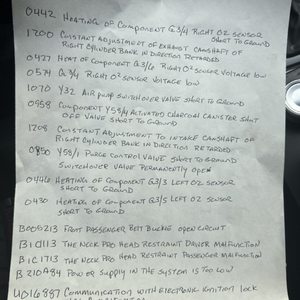 0442 Heating of Component G3/4 Right O2 Sensor
Short to Ground
1200 Constant Adjustment of Exhaust Camshaft of
Right Cylinder Bank in Direction Retarded
0427 Heat of Component G3/6 Right O2 Sensor Voltage Low
0574 G3/4 Right O2 Sensor Voltage Low
1070 Y32 Air Pump Switchover Valve Short to Ground
0958 Component Y58/4 Activated Charcoal Canister Shut
Off Valve Short to Ground
1208 Constant Adjustment to Intake Camshaft of
Right Cylinder Bank in Direction Retarded
0850 Y58/1 Purge Control Valve Short to Ground
Switchover Valve Permanently Open
0446 Heating of Component G3/3 Left O2 Sensor
Short to Ground
0430 Heating of Component G3/5 Left O2 Sensor
Short to Ground
B005213 Front Passenger Belt Buckle Open Circuit
B1C1113 The Neck Pro Head Restraint Driver Malfunction
B1C1713 The Neck Pro Head Restraint Passenger Malfunction
B210A84 Power Supply in the System is Too Low
U016887 Communication with Electronic Ignition Lock